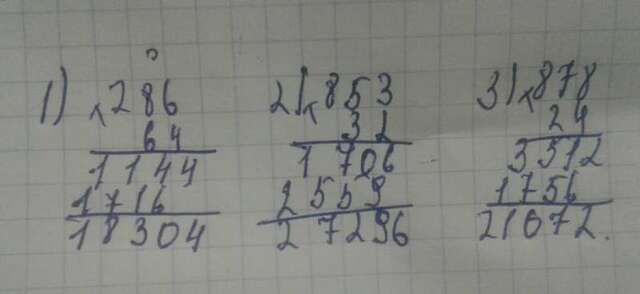 1) ×286
64
1144
1716
18304
2) ×853
32
1706
2559
27296
3) ×878
24
3512
1756
21072.